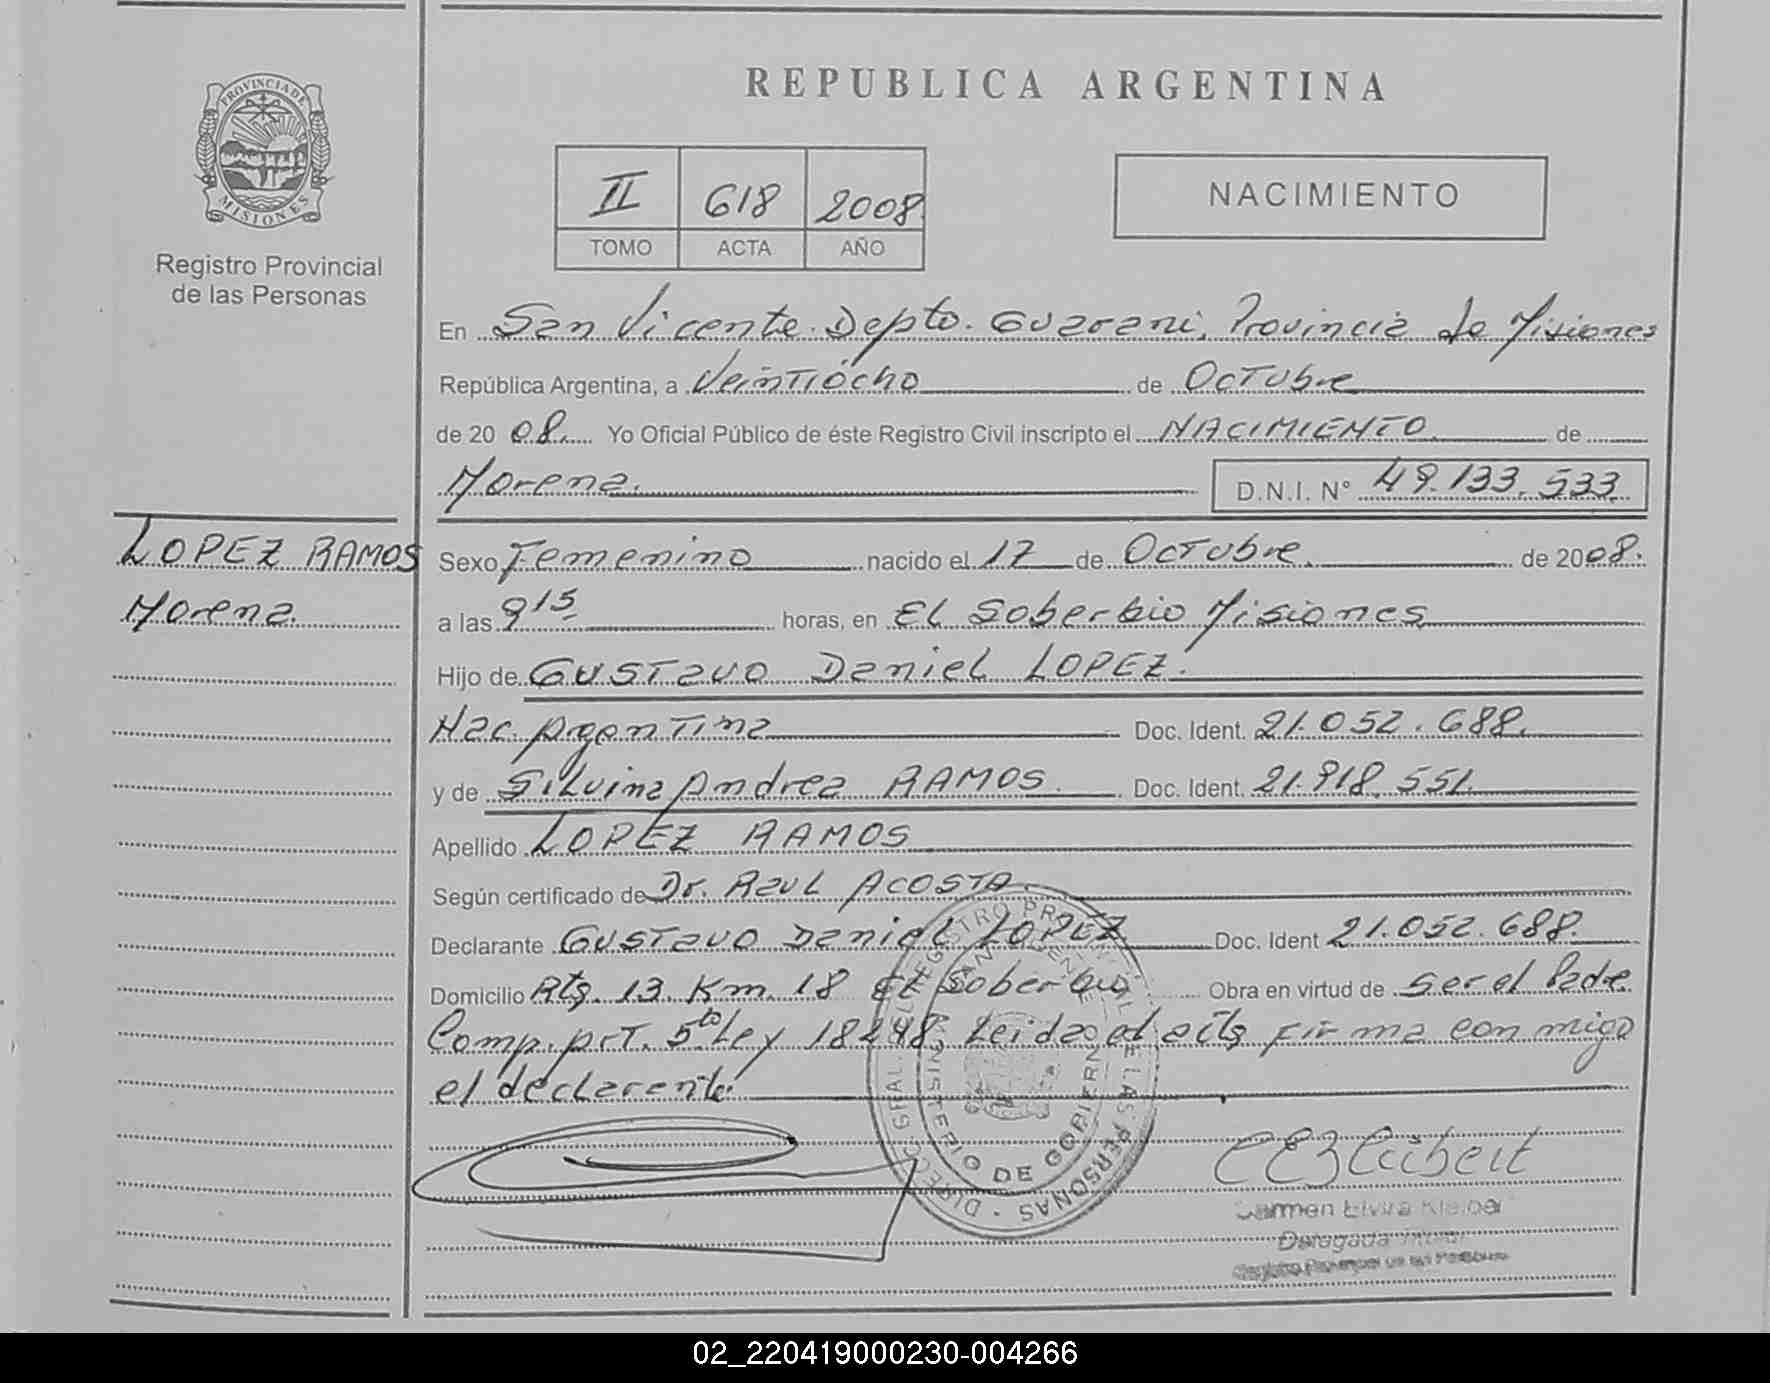 PROVINCIA DE
MISIONES
Registro Provincial
de las Personas
LOPEZ RAMOS
Morena
REPUBLICA ARGENTINA
II 618 2008
TOMO ACTA AÑO
NACIMIENTO
En San Vicente Depto. Guarani, Provincia de Misiones
República Argentina, a Veintiocho de Octubre
de 2008 Yo Oficial Público de éste Registro Civil inscripto el NACIMIENTO de
Morena. D.N.I. N° 49.133.533
Sexo Femenino nacido el 17 de Octubre. de 2008.
a las 9 15 horas, en El Soberbio Misiones
Hijo de Gustavo Daniel LOPEZ.
Nac. Argentina Doc. Ident. 21.052.688.
y de Silvina Andrea RAMOS. Doc. Ident. 21.918.551.
Apellido LOPEZ RAMOS
Según certificado de Dr. Raul ACOSTA.
Declarante Gustavo Daniel LOPEZ Doc. Ident 21.052.688.
Domicilio Rta. 13. Km. 18 El Soberbio Obra en virtud de ser el Padre
Comp. art. 5to Ley 18248. Leida el acta firma conmigo
el declarante.
MINISTERIO DE GOBIERNO
LAS PERSONAS
Carmen Elvira
Delegada
02_220419000230-004266